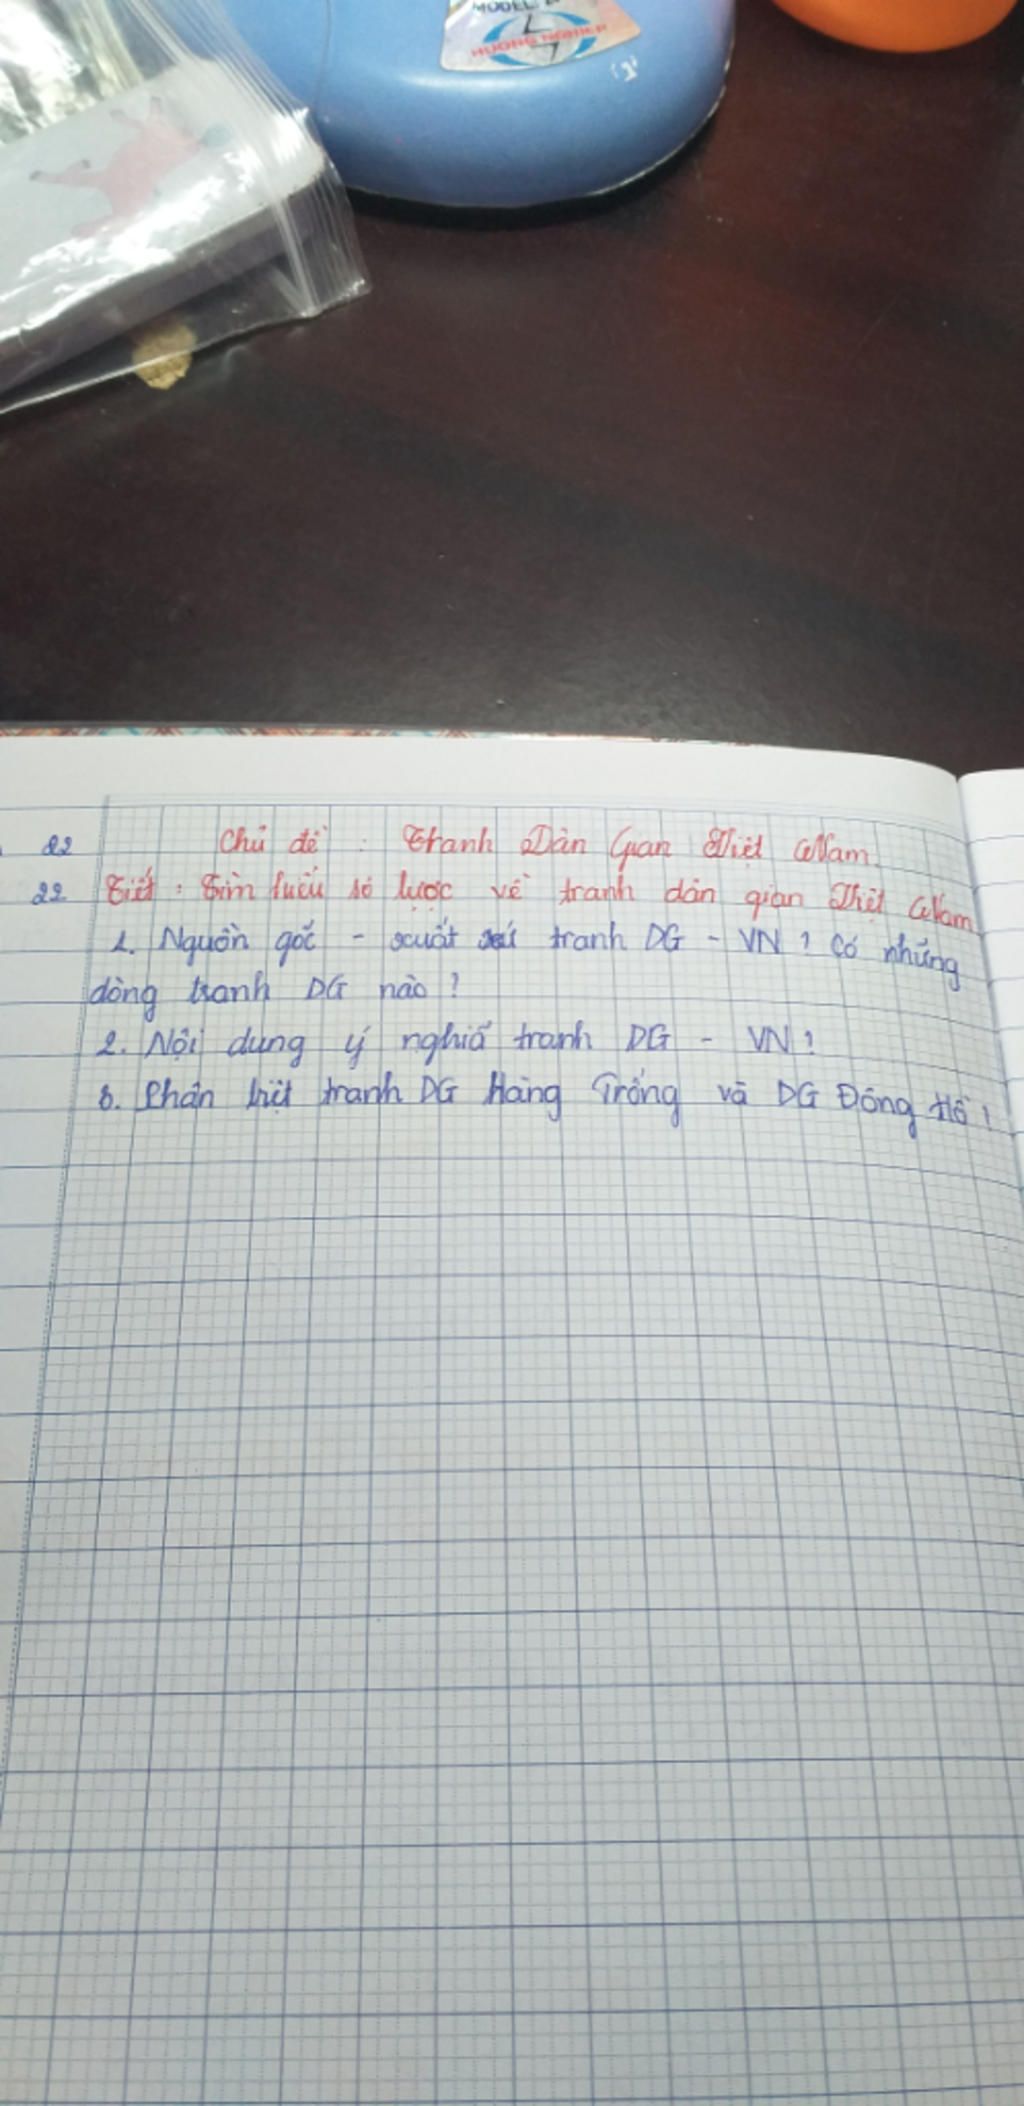 MODEL:
HUONG NGHIEP
22 Chủ đề : Tranh Dân Gian Việt Nam.
22 Tiết : Tìm hiểu sơ lược về tranh dân gian Việt Nam
1. Nguồn gốc - xuất xứ tranh DG - VN ? Có những
dòng tranh DG nào ?
2. Nội dung ý nghiã tranh DG - VN ?
3. Phân biệt tranh DG Hàng Trống và DG Đông Hồ ?